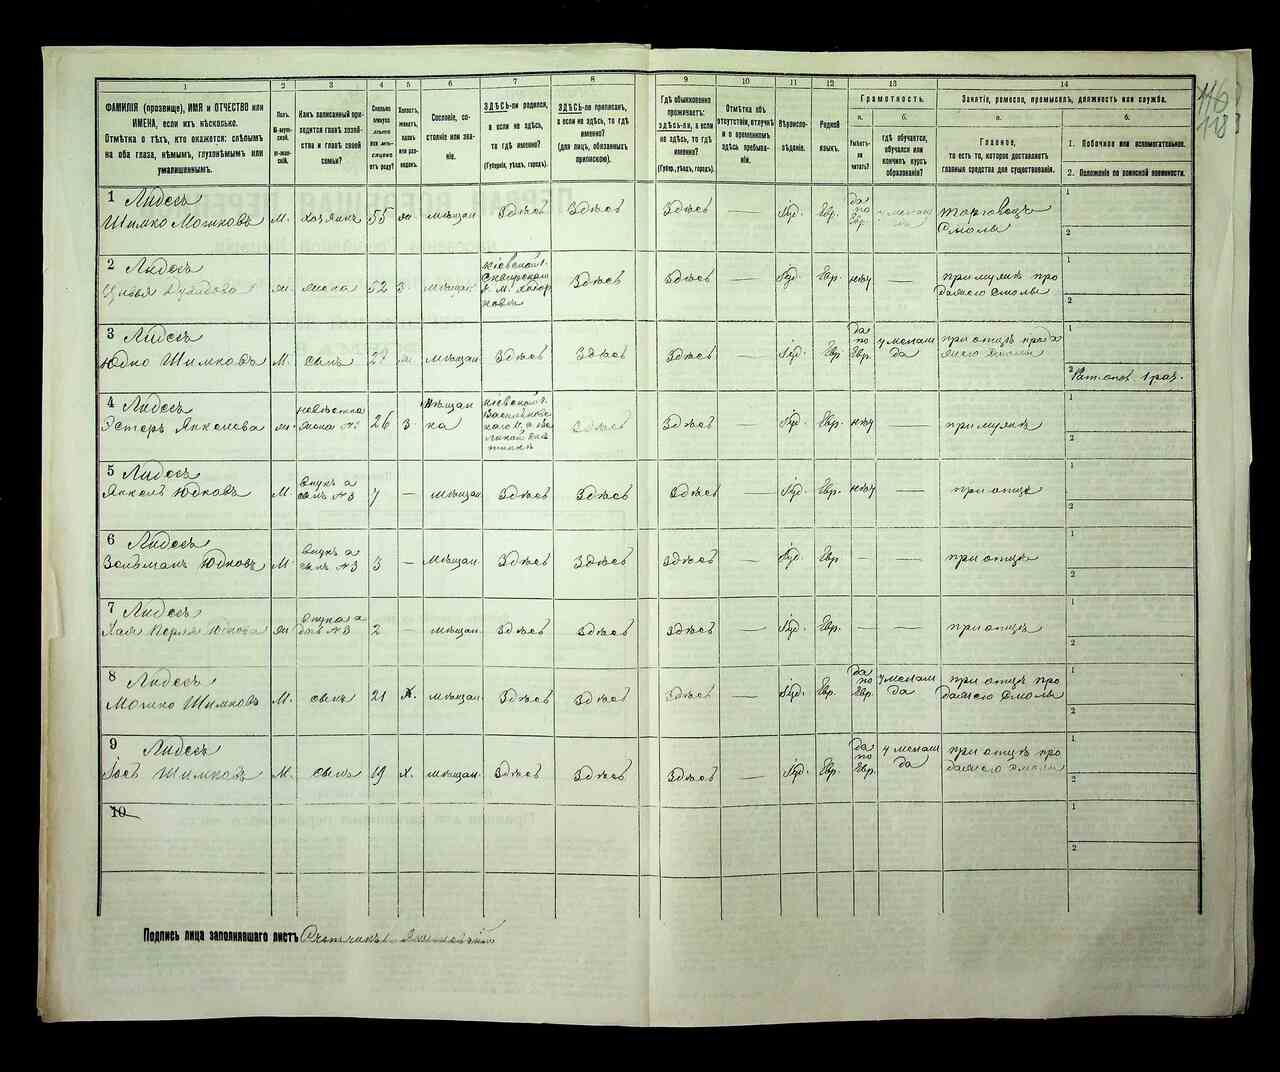 116
118
1
2
3
4
5
6
7
8
9
10
11
12
13
14
ФАМИЛІЯ (прозвище), ИМЯ и ОТЧЕСТВО или
ИМЕНА, если ихъ нѣсколько.
Отмѣтка о тѣхъ, кто окажется: слѣпымъ
на оба глаза, нѣмымъ, глухонѣмымъ или
умалишеннымъ.
Полъ.
М-мужской.
Ж-женскій.
Какъ записанный приходится главѣ хозяйства и главѣ своей
семьи?
Сколько минуло лѣтъ или мѣсяцевъ отъ роду?
Холостъ, женатъ, вдовъ или разведенъ.
Сословіе, состояніе или званіе.
ЗДѢСЬ-ли родился,
а если не здѣсь,
то гдѣ именно?
(Губернія, уѣздъ, городъ).
ЗДѢСЬ-ли приписанъ,
а если не здѣсь, то гдѣ
именно?
(для лицъ, обязанныхъ
припискою).
Гдѣ обыкновенно
проживаетъ:
ЗДѢСЬ-ли, а если
не здѣсь, то гдѣ
именно?
(Губерн., уѣздъ, городъ).
Отмѣтка объ
отсутствіи, отлучкѣ
и о временномъ
здѣсь пребываніи.
Вѣроисповѣданіе.
Родной
языкъ.
Грамотность.
а.
Умѣетъ-ли
читать?
б.
гдѣ обучается,
обучался или
кончилъ курсъ
образованія?
Занятіе, ремесло, промыселъ, должность или служба.
а.
Главное,
то есть то, которое доставляетъ
главныя средства для существованія.
б.
1. Побочное или вспомогательное.
2. Положеніе по воинской повинности.
1 Лидесъ
Шимко Мошковъ М. хозяинъ 55 мѣщан Здѣсь Здѣсь Здѣсь — Іуд. Евр. да по Евр. торговецъ Смолы
1
2
2 Лидесъ
ж. жена 52 з. мѣщан Кіевской г. Сквирскаго Здѣсь Здѣсь — Іуд. Евр. нѣт — при мужѣ продажею смолы
1
2
3 Лидесъ
Юдко Шимковъ М. сынъ 27 мѣщан Здѣсь Здѣсь Здѣсь — Іуд. Евр да по Евр. у меламда при отцѣ продажею смолы
1
2 1 раз.
4 Лидесъ
Эстеръ Янкелева ж. невѣстка жена №3 26 з. Мѣщанка Кіевской г. Здѣсь Здѣсь — Іуд. Евр. нѣт — при мужѣ
1
2
5 Лидесъ
Янкель Юдковъ М. внукъ а сынъ №3 7 — мѣщан Здѣсь Здѣсь Здѣсь Іуд. Евр. нѣт — при отцѣ
1
2
6 Лидесъ
Зельманъ Юдковъ М. внукъ а сынъ №3 3 — мѣщан. Здѣсь Здѣсь Здѣсь — Іуд. Евр — — при отцѣ
1
2
7 Лидесъ
Хая Перля Юдкова ж внука а дочь №3 2 — мѣщан. Здѣсь Здѣсь Здѣсь — Іуд. Евр. — — при отцѣ
1
2
8 Лидесъ
Мошко Шимковъ М. сынъ 21 х. мѣщан Здѣсь Здѣсь Здѣсь — Іуд. Евр. да по Евр. у меламда при отцѣ продажею смолы
1
2
9 Лидесъ
Іось Шимковъ М. сынъ 19 х. мѣщан Здѣсь Здѣсь Здѣсь — Іуд. Евр. да по Евр. у меламда при отцѣ продажею смолы
1
2
10
1
2
Подпись лица заполнявшаго листъ Счетчикъ